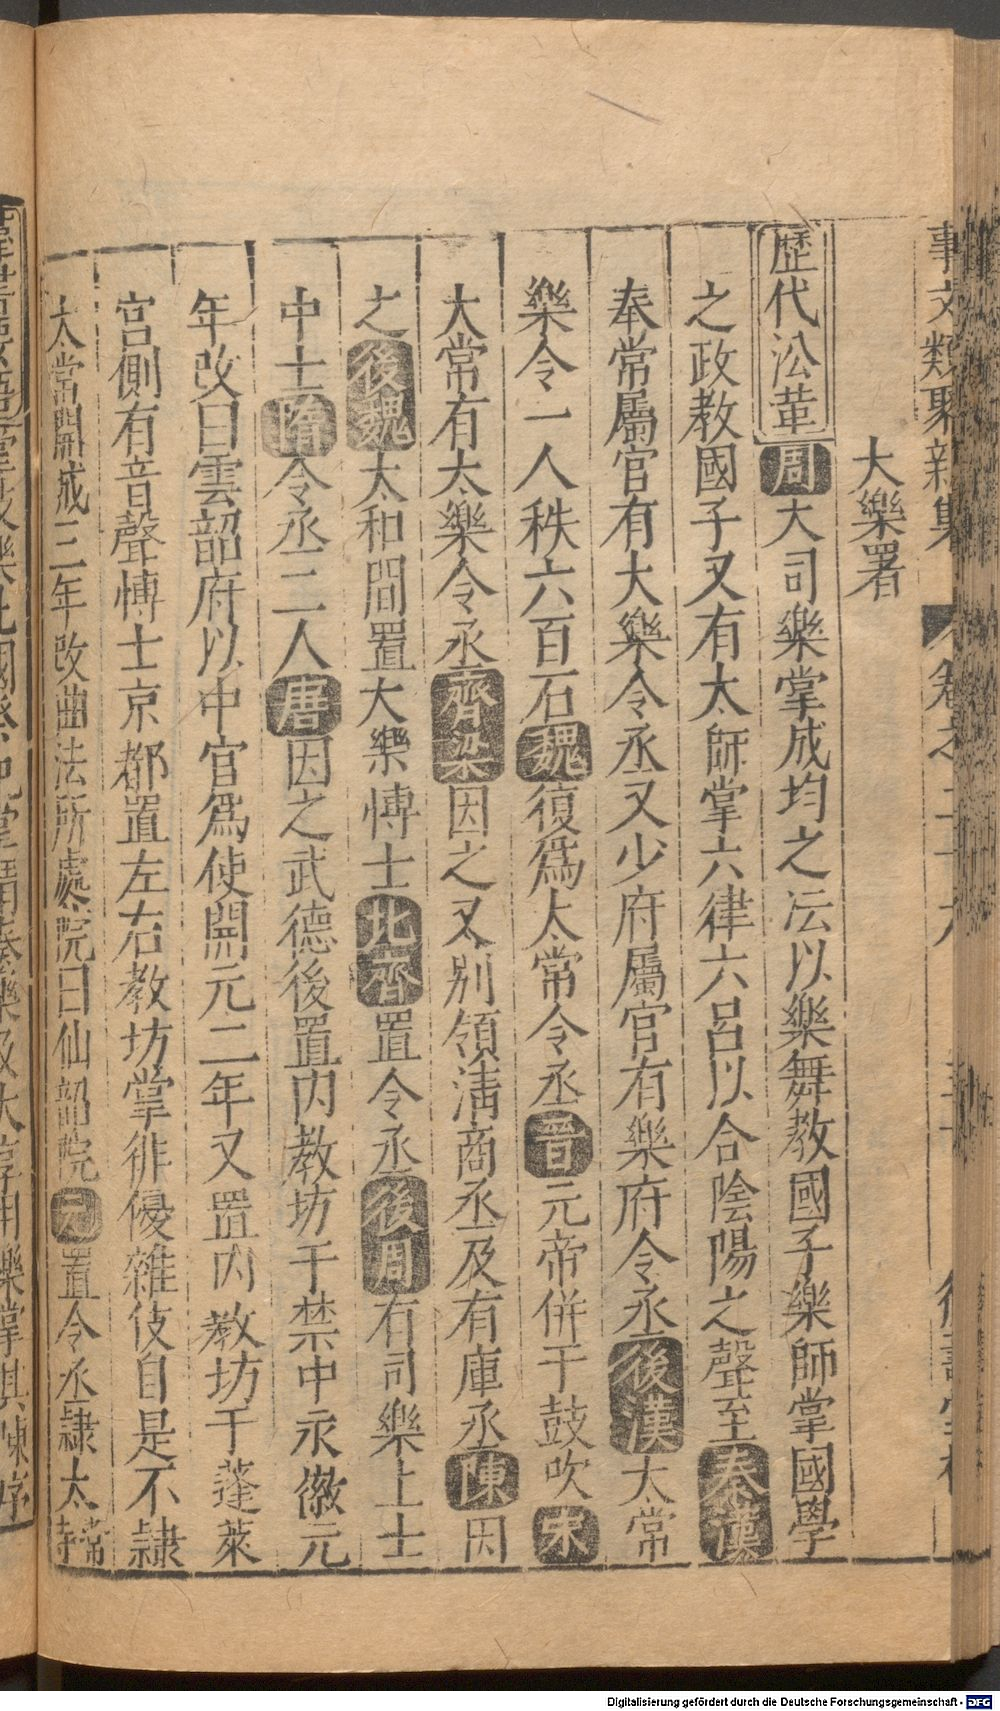 事文類聚新集 卷之三十九
大樂署
歷代㳂革 周 大司樂掌成均之法以樂舞教國子樂師掌國學
之政教國子又有太師掌六律六呂以合陰陽之聲至 秦漢
奉常屬官有大樂令丞又少府屬官有樂府令丞 後漢 太常
樂令一人秩六百石 魏 復爲太常令丞 晉 元帝併于鼓吹 宋
大常有太樂令丞 齊梁 因之又別領清商丞及有庫丞 陳 因
之 後魏 太和間置大樂博士 北齊 置令丞 後周 有司樂上士
中士 隋 令丞二人 唐 因之武德後置内教坊于禁中永徽元
年改曰雲韶府以中官爲使開元二年又置内教坊于蓬萊
宫側有音聲博士京都置左右教坊掌徘優雜伎自是不隷
太常開成三年改曲法所處院曰仙韶院 元 置令丞隷太常
Digitalisierung gefördert durch die Deutsche Forschungsgemeinschaft - DFG